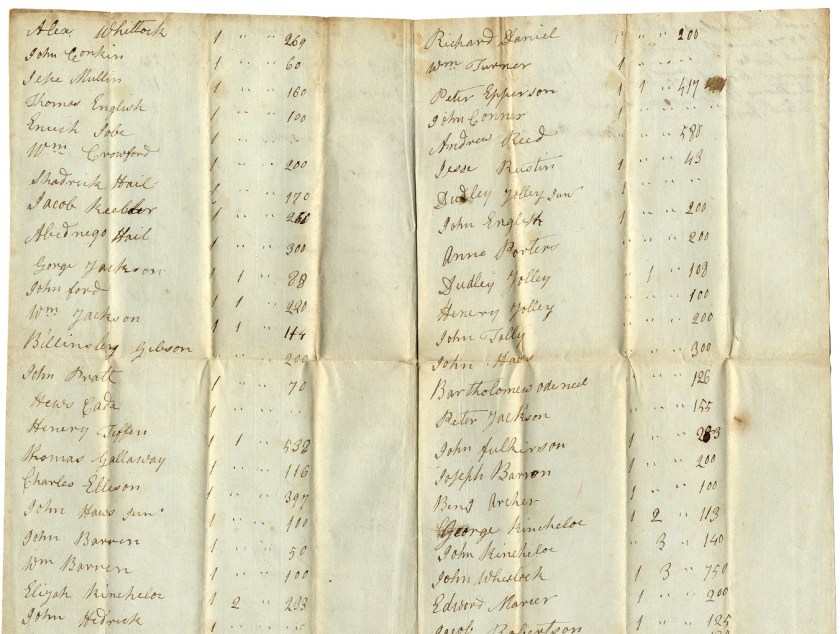 Alex Whittock 1 " " 269
John Conkin 1 " " 60
Jese Mullin 1 " " 160
Thomas English 1 " " 100
Enuch Jobe 1 " "
Wm Crowford 1 " " 200
Shadrick Hail 1 " " 170
Jacob Keebler 1 " " 250
Abednego Hail 1 " " 300
Gorge Jackson 1 1 " 88
John ford 1 1 " 220
Wm Jackson 1 1 " 144
Billinsley Gibson " " 200
John Pratt 1 " " 70
Hews Cade 1 " " "
Henery Tiffen 1 1 " 538
Thomas Gallaway 1 " " 116
Charles Elleson 1 " " 397
John Haws Jun 1 " " 100
John Barren 1 " " 50
Wm Barren 1 " " 100
Elijah Kincheloe 1 2 " 283
John Hedrick 1 " "
Richard Daniel " " 200
Wm Turner 1 " " "
Peter Epperson 1 1 " 417
John Conner 1 " " "
Andrew Reed " " 588
Jesse Rustin 1 " " 43
Dudley Jolley Jun 1 " " "
John English 1 " " 200
Anne Porters " " 200
Dudley Jolley " 1 " 108
Henery Jolley " " 100
John Jolly " " 200
John Haws " " 300
Bartholomew odeneel " " 126
Peter Jackson " " 155
John fulkerson 1 " " 283
Joseph Barron 1 " " 200
Benj Archer 1 " " 100
George Kincheloe 1 2 " 113
John Kincheloe " 3 " 140
John Wheelock 1 3 " 750
Edword Mercer 1 " " 200
Jacob Robertson 1 " " 125